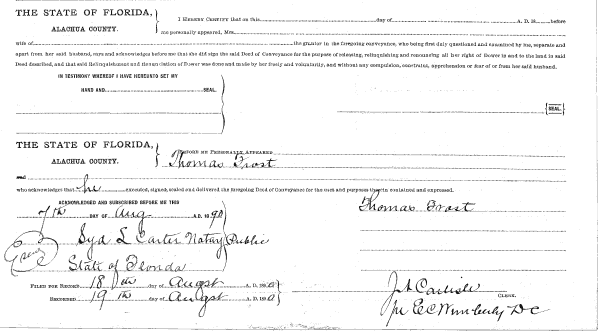 THE STATE OF FLORIDA,
ALACHUA COUNTY.
I HEREBY CERTIFY that on this day of A. D. 18 before
me personally appeared, Mrs.
wife of the grantor in the foregoing conveyance, who being first duly questioned and examined by me, separate and
apart from her said husband, says and acknowledges before me that she did sign the said Deed of Conveyance for the purpose of releasing, relinquishing and renouncing all her right of Dower in and to the land in said
Deed described, and that said Relinquishment and Renunciation of Dower was done and made by her freely and voluntarily, and without any compulsion, constraint, apprehension or fear of or from her said husband.
IN TESTIMONY WHEREOF I HAVE HEREUNTO SET MY
HAND AND SEAL.
SEAL.
THE STATE OF FLORIDA,
ALACHUA COUNTY.
BEFORE ME PERSONALLY APPEARED
Thomas Frost
and
who acknowledge that he executed, signed, sealed and delivered the foregoing Deed of Conveyance for the uses and purposes therein contained and expressed.
ACKNOWLEDGED AND SUBSCRIBED BEFORE ME THIS
7th DAY OF Aug A.D. 1890
Thomas Frost
Syd L Carter Notary Public
State of Florida
FILED FOR RECORD 18 day of August A. D. 1890
RECORDED 19th day of August A.D. 1890
J A Carlisle
CLERK.
pr E C Wimberly D C